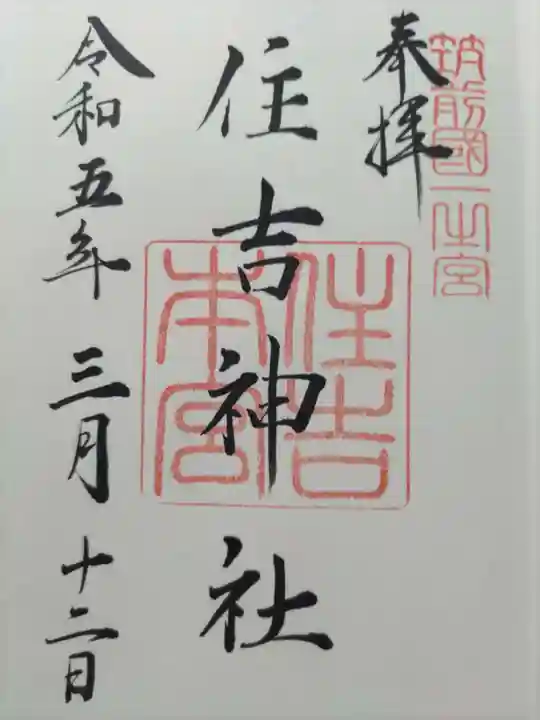 筑前國一之宮
奉拝
住吉神社
住吉本宮
令和五年三月十二日